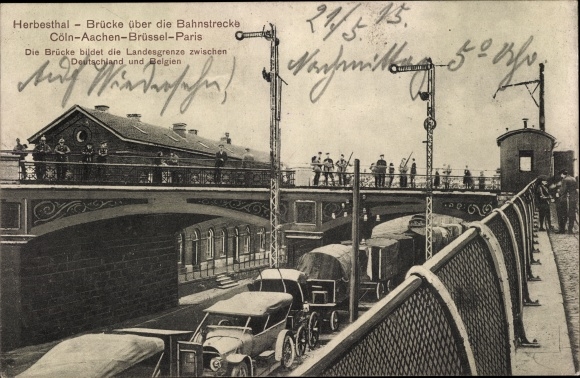 Herbesthal – Brücke über die Bahnstrecke
Cöln-Aachen-Brüssel-Paris
Die Brücke bildet die Landesgrenze zwischen
Deutschland und Belgien
21/5. 15.
Auf Wiedersehn!
Nachmittag 5⁰ Uhr